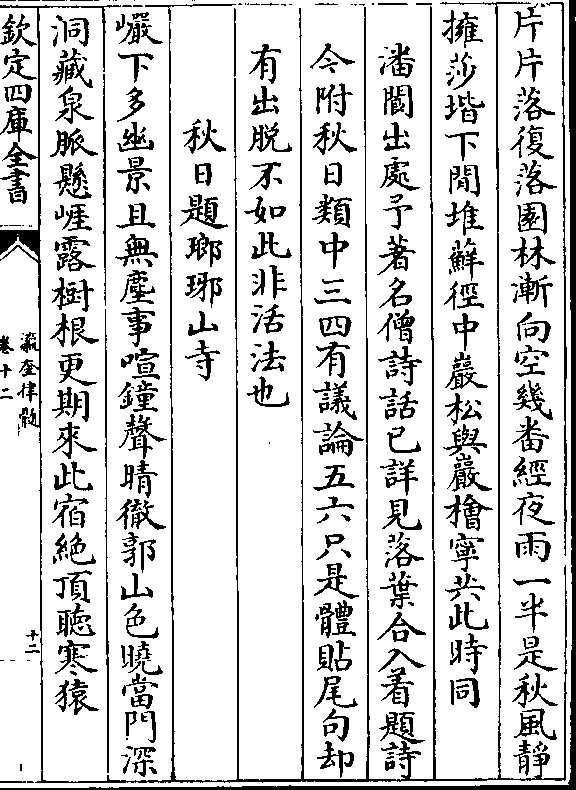 片片落復落園林漸向空幾番經夜雨一半是秋風靜
擁莎堦下閒堆蘚徑中巖松與巖檜寧共此時同
潘閬出處予著名僧詩話已詳見落葉合入着題詩
今附秋日類中三四有議論五六只是體貼尾句却
有出脫不如此非活法也
秋日題瑯琊山寺
巗下多幽景且無塵事喧鐘聲晴徹郭山色曉當門深
洞藏泉脈懸崕露樹根更期來此宿絶頂聽寒猿
欽定四庫全書
瀛奎律髓
卷十二
十二